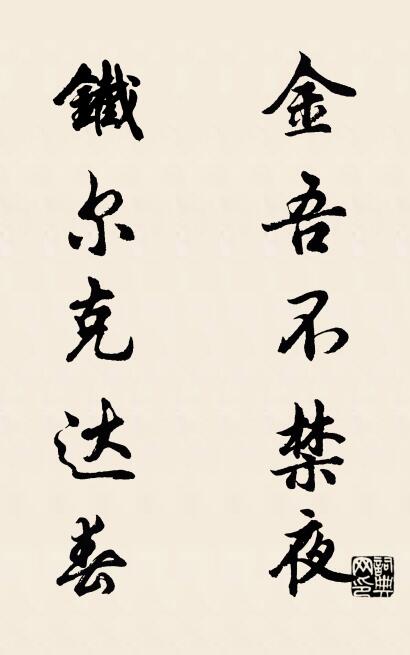 金吾不禁夜
鐵尔克达春
詞典
网印